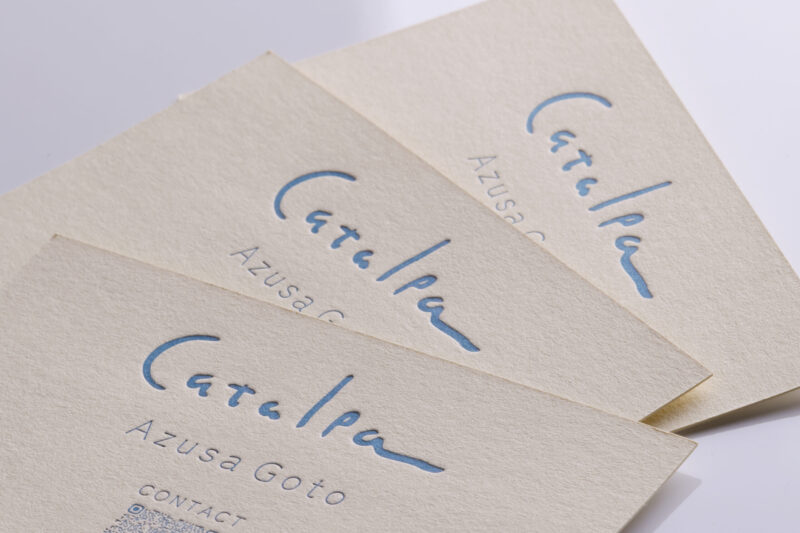 Catalpa
Azusa G
Catalpa
Azusa G
Catalpa
Azusa Goto
CONTACT